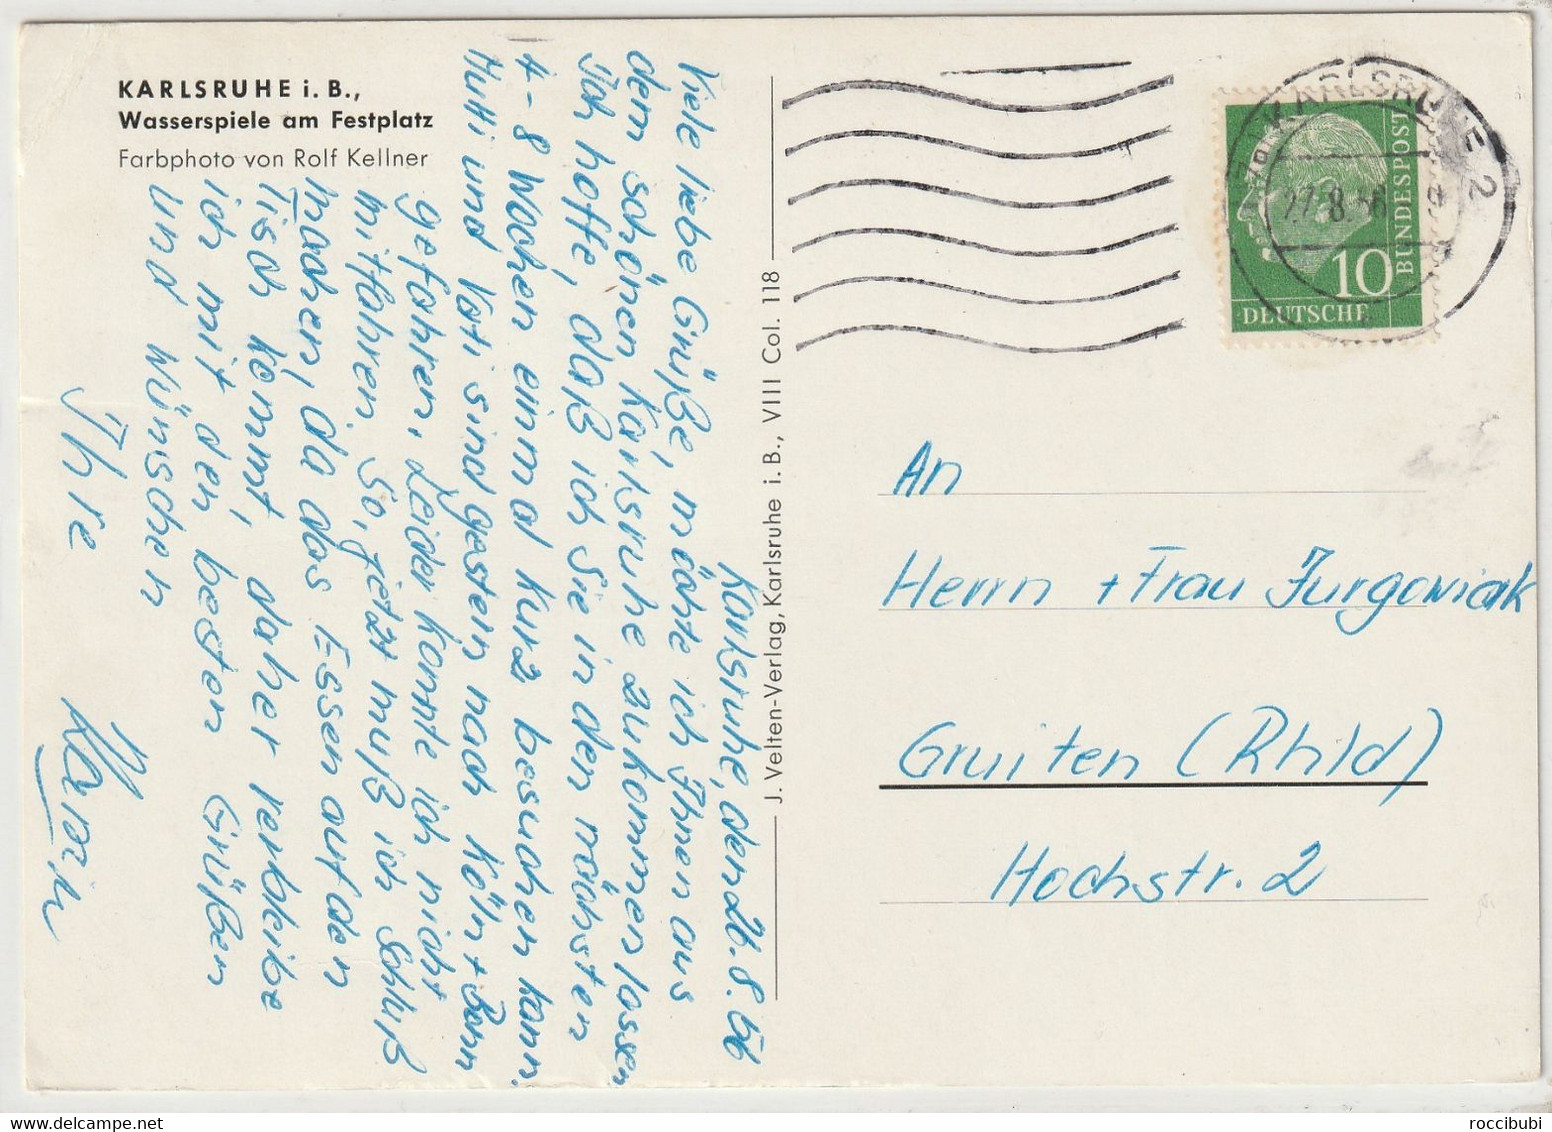 KARLSRUHE i. B.,
Wasserspiele am Festplatz
Farbphoto von Rolf Kellner
Karlsruhe, den 26.8.56
Viele liebe Grüße, möchte ich Ihnen aus
dem schönen Karlsruhe zukommen lassen
Ich hoffe, daß ich Sie in den nächsten
4-8 Wochen einmal kurz besuchen kann.
Mutti und Vati sind gestern nach Köln + Bonn
gefahren. Leider konnte ich nicht
mitfahren. So, jetzt muß ich Schluß
machen, da das Essen auf den
Tisch kommt, daher verbleibe
ich mit den besten Grüßen
und Wünschen
Ihre
J. Velten-Verlag, Karlsruhe i. B., VIII Col. 118
KARLSRUHE 2
27.8.56
10
DEUTSCHE
BUNDESPOST
An
Herrn + Frau Jurgoviak
Gruiten (Rhld)
Hochstr. 2
roccibubi